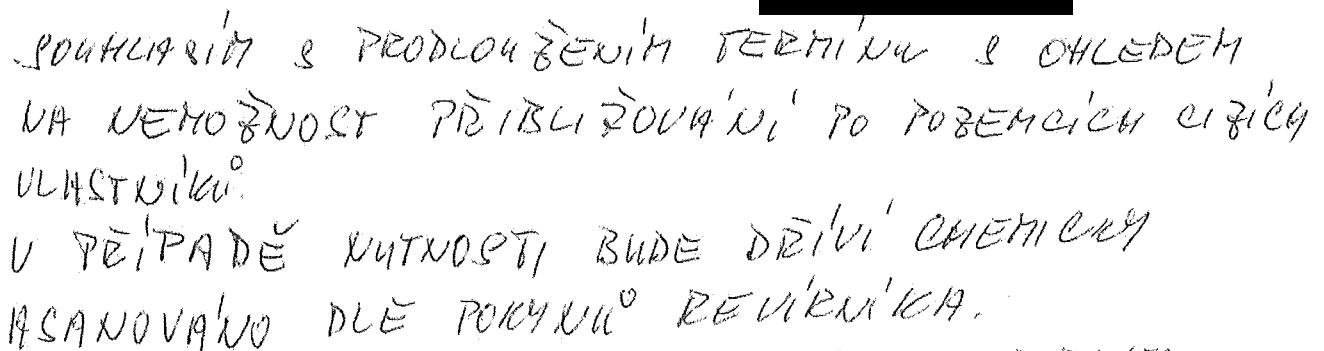 SOUHLASÍM S PRODLOUŽENÍM TERMÍNU S OHLEDEM
NA NEMOŽNOST PŘIBLIŽOVÁNÍ PO POZEMCÍCH CIZÍCH
VLASTNÍKŮ.
V PŘÍPADĚ NUTNOSTI BUDE DŘÍVÍ CHEMICKY
ASANOVÁNO DLE POKYNŮ REVÍRNÍKA.